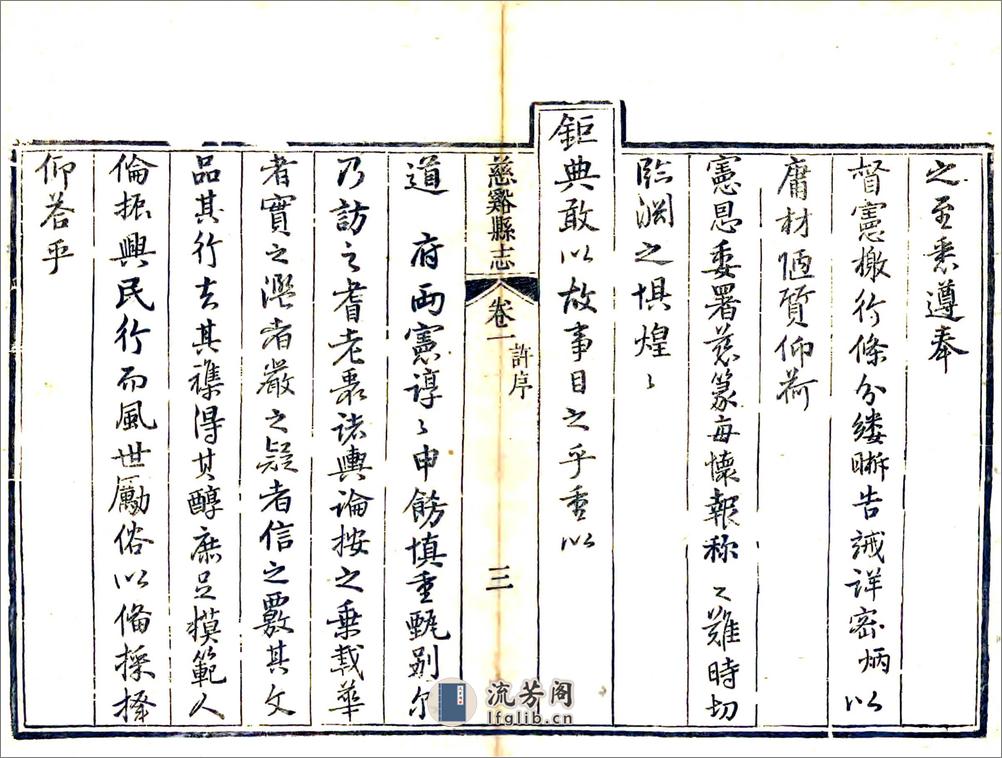 之至悉遵奉
督憲檄行條分縷晰告誡詳密炳以
庸材陋質仰荷
憲恩委署慈篆每懷報称之難時切
臨淵之惧煌〻
鉅典敢以故事目之乎重以
慈谿縣志
卷一
許序
三
道 府兩憲諄〻申飭慎重甄别尔
乃訪之耆老衷諸輿論按之乗載華
者實之濫者嚴之疑者信之覈其文
品其行去其襍得其醇庶足模範人
倫振興民行而風世勵俗以俻採擇
仰荅乎
流芳阁
lfglib.cn